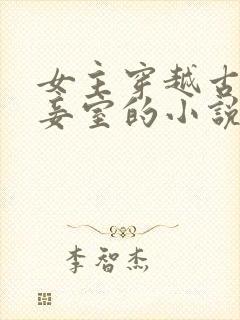 女主穿越古
妾室的小說
李智杰